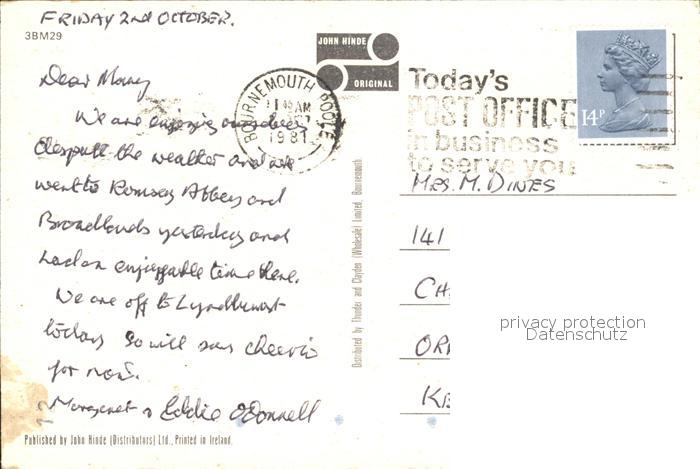 FRIDAY 2nd OCTOBER.
3BM29
JOHN HINDE
ORIGINAL
BOURNEMOUTH POOLE
11 45 AM
1981
Today's
POST OFFICE
in business
to serve you
14P
Dear Mary
We are enjoying ourselves
despite the weather and we
went to Romsey Abbey and
Broadlands yesterday and
had an enjoyable time there.
We are off to Lyndhurst
today so will say cheerio
for now.
Margaret & Eddie O'Donnell
12
Published by John Hinde (Distributors) Ltd., Printed in Ireland.
Distributed by Thunder and Clayden (Wholesale) Limited, Bournemouth
MRS. M. DINES
141
privacy protection
Datenschutz